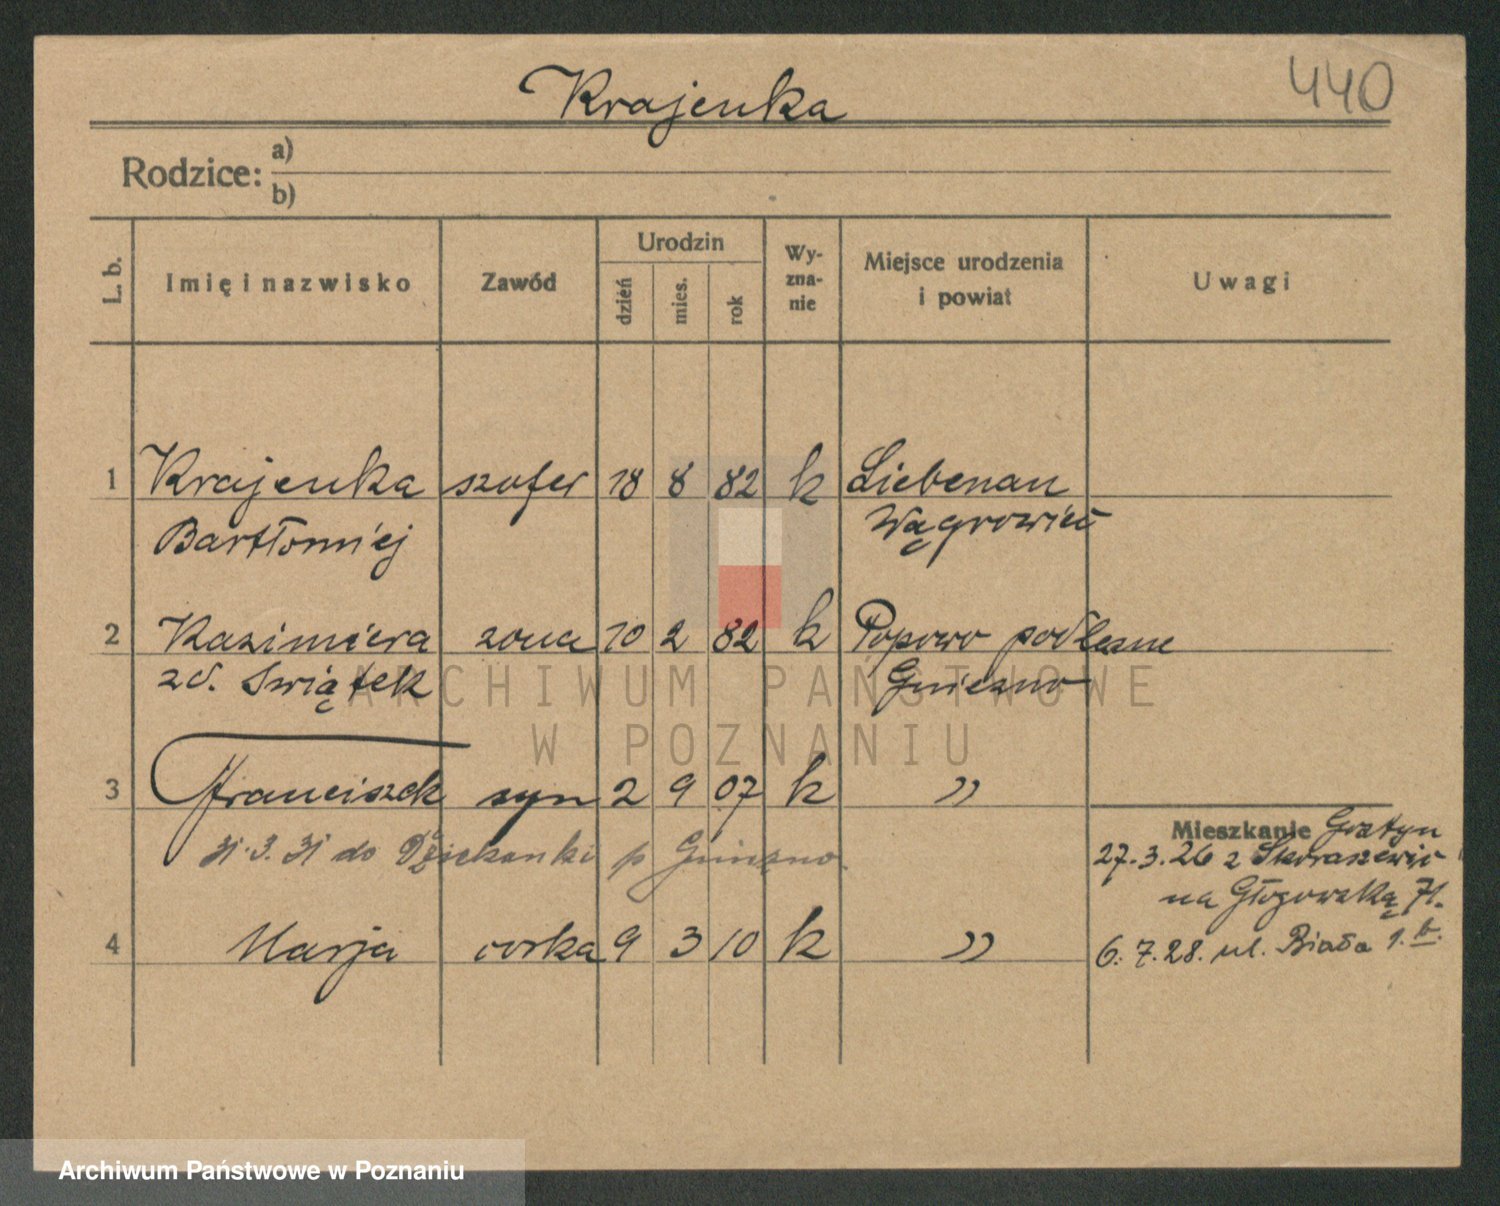 Krajenka
440
Rodzice: a)
b)
L. b. Imię i nazwisko Zawód Urodzin dzień mies. rok Wy-zna-nie Miejsce urodzenia i powiat Uwagi
1 Krajenka szofer 18 8 82 k Liebenau
Bartłomiej Wągrowiec
2 Kazimiera zona 10 2 82 k Popowo podlesne
zd. Swiątek Gniezno
3 Franciszek syn 2 9 07 k "
Mieszkanie Gostyn
31.3.31 do Dziekanki p Gniezno
27.3.26 z Skoraszewic
na Głogowską 71.
4 Marja corka 9 3 10 k "
6.7.28. ul. Biała 1.
ARCHIWUM PAŃSTWOWE
W POZNANIU
Archiwum Państwowe w Poznaniu